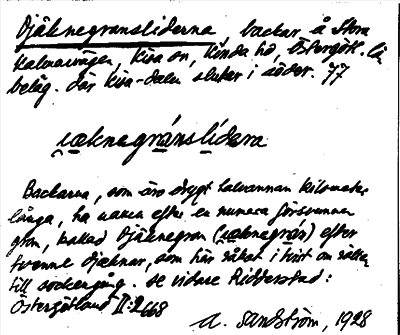 Djäknegransliderna, backar å Stora
Kalmarvägen, Kisa sn, Kinda hd, Östergötl. län
beläg. där Kisa-dalen slutar i söder. 77
u̯æknegránslídera
Backarna, som äro drygt halvannan kilometer
långa, ha namn efter en numera försvunnen
gran, kallad Djäknegran (u̯æknegrán) efter
tvenne djäknar, som här råkat i tvist om rätten
till sockengång. Se vidare Ridderstad:
Östergötland II:2 668
A. Sandström, 1928